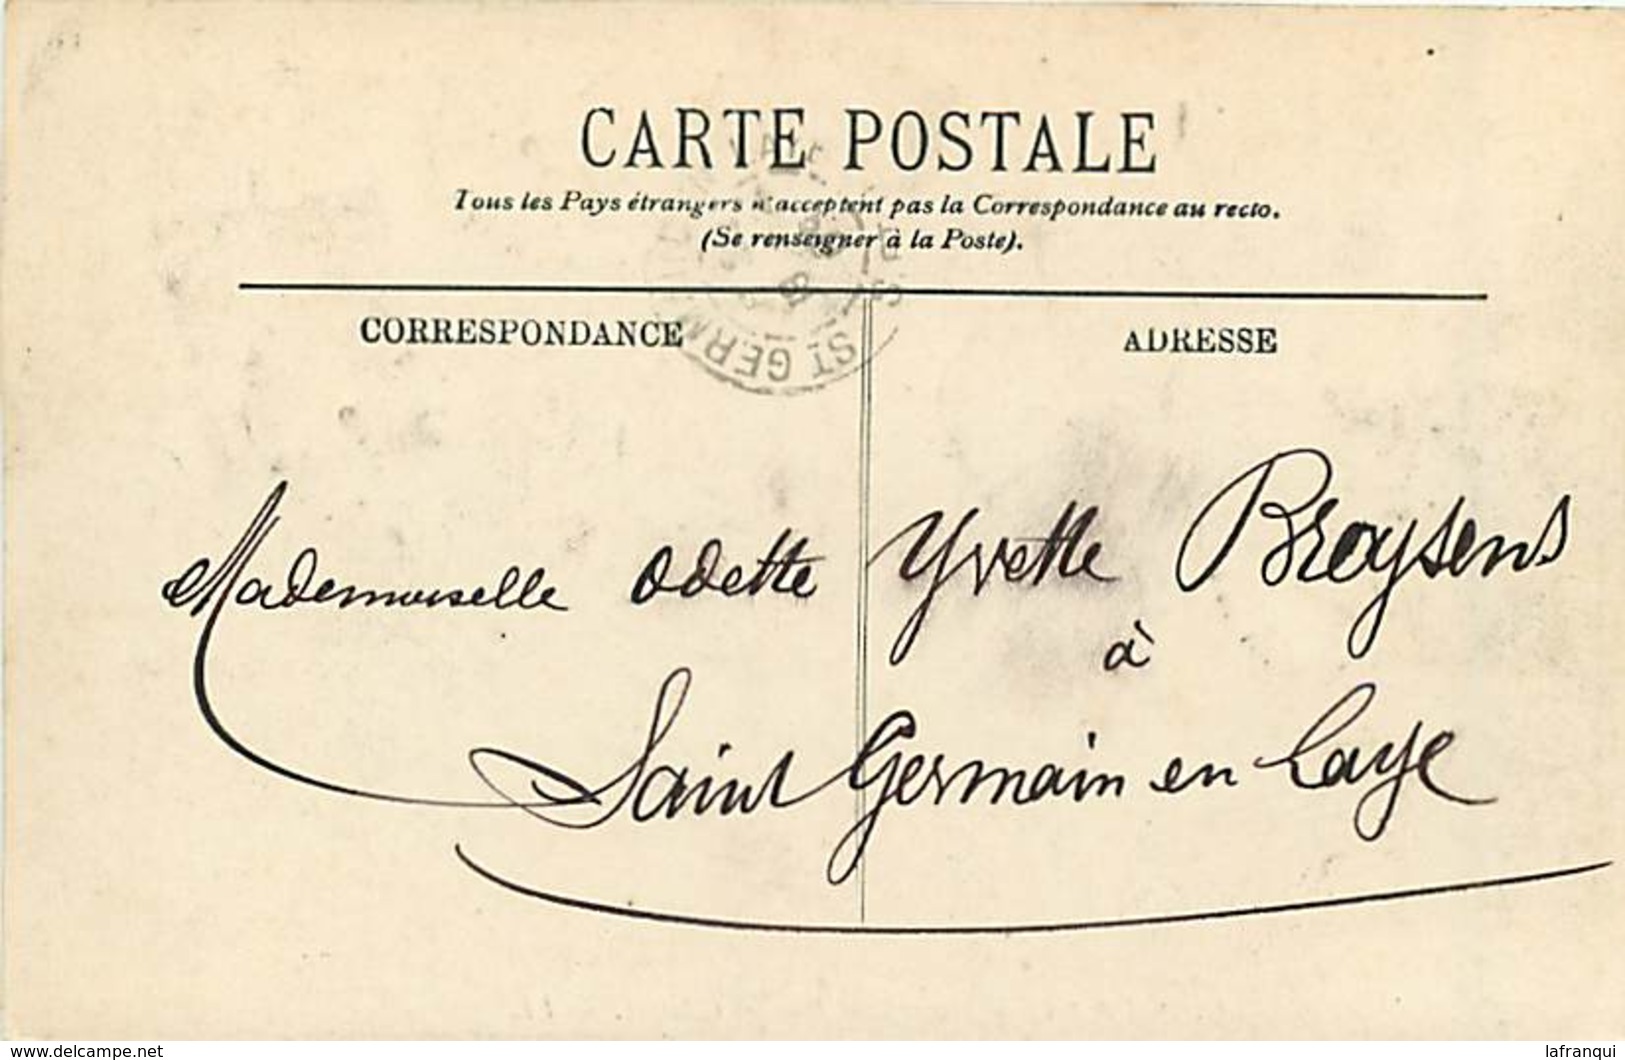 CARTE POSTALE
Tous les Pays étrangers n'acceptent pas la Correspondance au recto.
(Se renseigner à la Poste).
CORRESPONDANCE
ADRESSE
ST GERM
Mademoiselle Odette Yvette Broysens
à
Saint Germain en Laye
www.delcampe.net
lafranqui